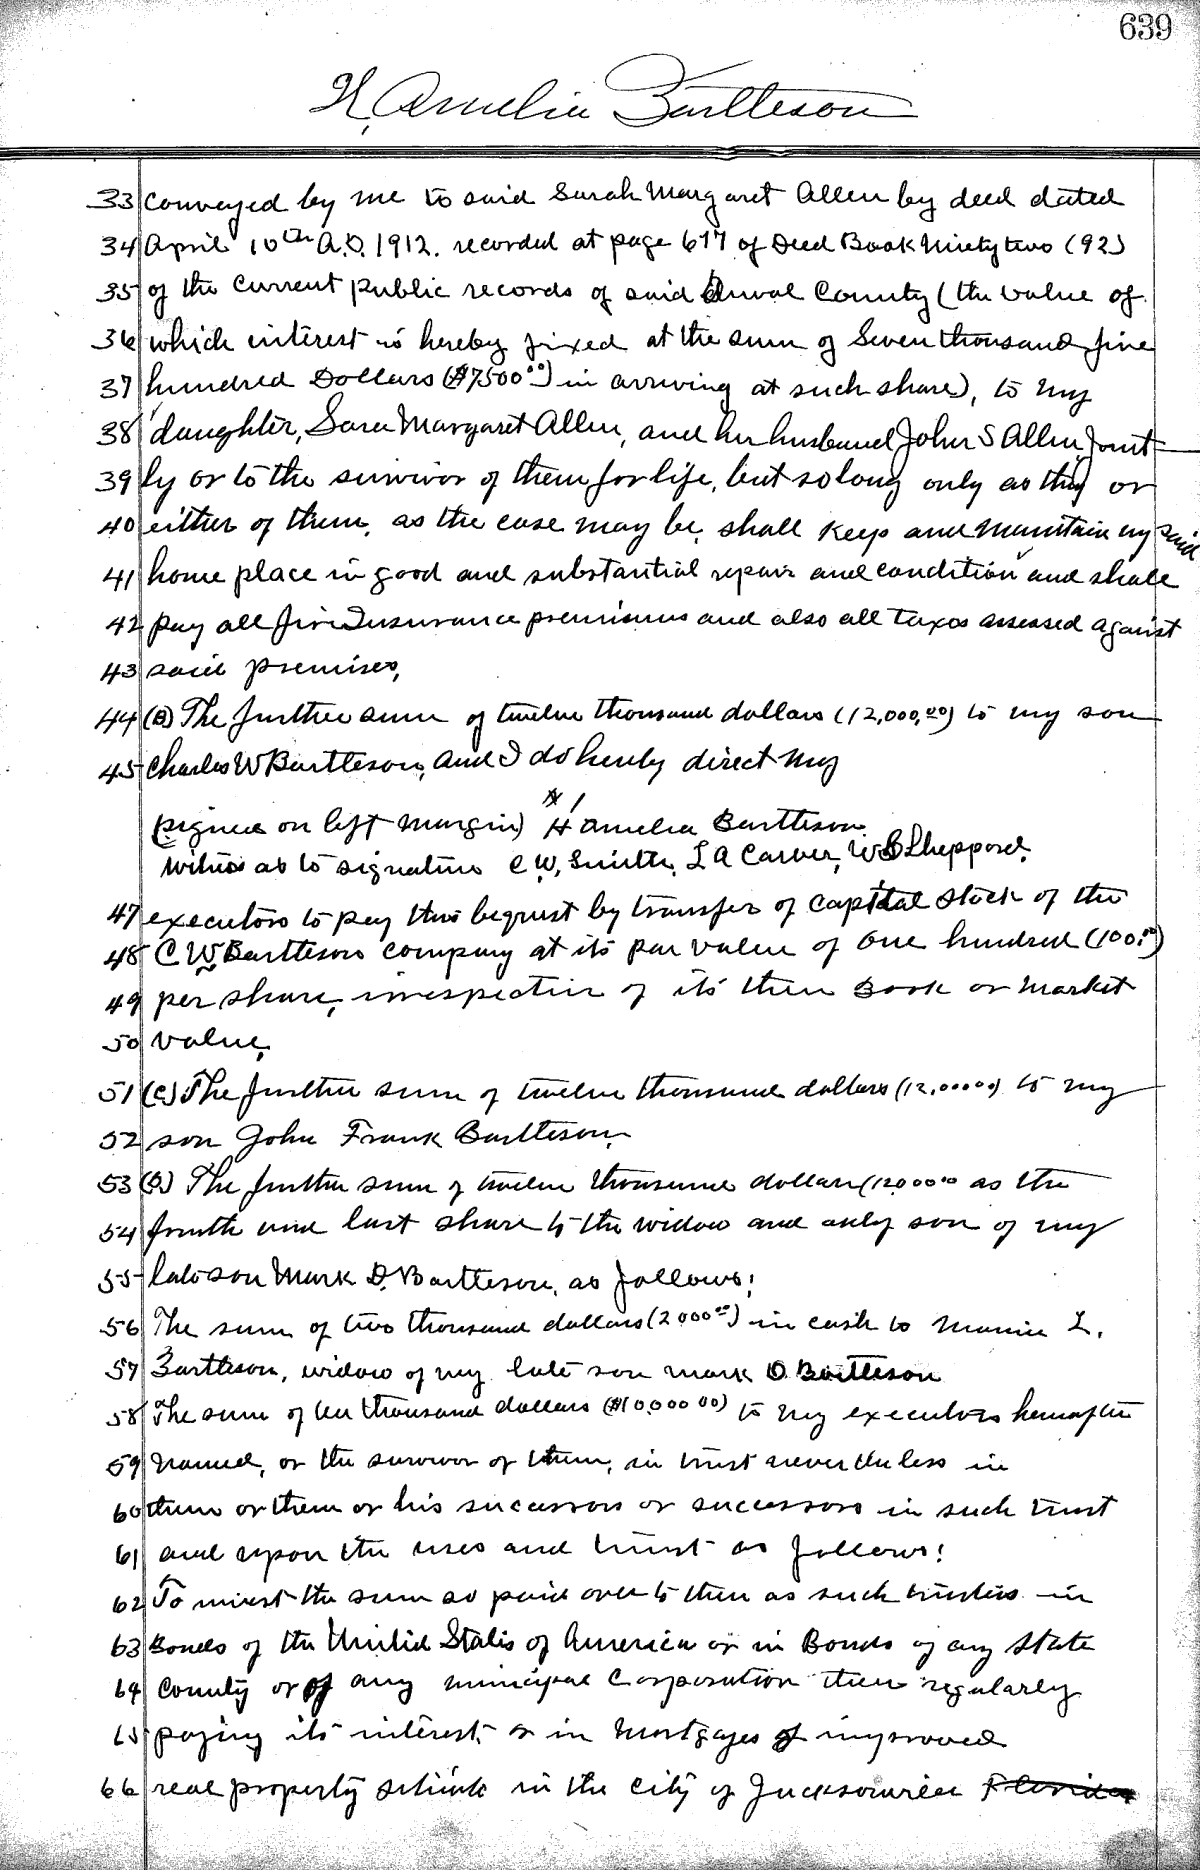 639
H. Amelia Bartleson
33 conveyed by me to said Sarah Margaret Allen by deed dated
34 April 10th A.D. 1912. recorded at page 617 of Deed Book Ninety two (92)
35 of the current public records of said Duval County (the value of
36 which interest is hereby fixed at the sum of Seven thousand five
37 hundred Dollars ($7500.00) in arriving at such share), to my
38 daughter, Sara Margaret Allen, and her husband John S Allen, Joint
39 ly or to the survivor of them for life, but so long only as they or
40 either of them, as the case may be, shall keep and maintain my said
41 home place in good and substantial repair and condition and shall
42 pay all fire Insurance premiums and also all taxes assessed against
43 said premises,
44 (B) The further sum of twelve thousand dollars (12,000,00) to my son
45 Charles W Bartleson, and I do hereby direct my
(signed on left margin) H Amelia Bartleson
Witness as to signature C. W. Smith, L A Carver, W B Sheppard.
47 executors to pay this bequest by transfer of capital stock of the
48 C W Bartleson company at its par value of one hundred (100.00)
49 per share, irrespective of its then Book or market
50 value.
51 (C) The further sum of twelve thousand dollars (12,00000) to my
52 son John Frank Bartleson.
53 (D) The further sum of twelve thousand dollars (1200000 as the
54 fourth and last share to the widow and only son of my
55 late son Mark D. Bartleson, as follows:
56 The sum of two thousand dollars (200000) in cash to Mamie L.
57 Bartleson, widow of my late son Mark D. Bartleson
58 The sum of ten thousand dollars ($10,000 00) to my executors hereafter
59 named, or the survivor of them, in trust nevertheless in
60 them or them or his successors or successors in such trust
61 and upon the uses and trust as follows:
62 To invest the sum so paid over to them as such trustees in
63 Bonds of the United States of America or in Bonds of any State
64 County or of any municipal Corporation then regularly
65 paying its interest, or in Mortgages of improved
66 real property situate in the city of Jacksonville Florida